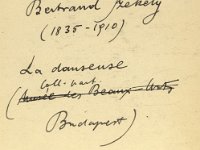 Bertrand Szekely
(1835-1910)
La danseuse
(Musée des Beaux-Arts
Budapest)